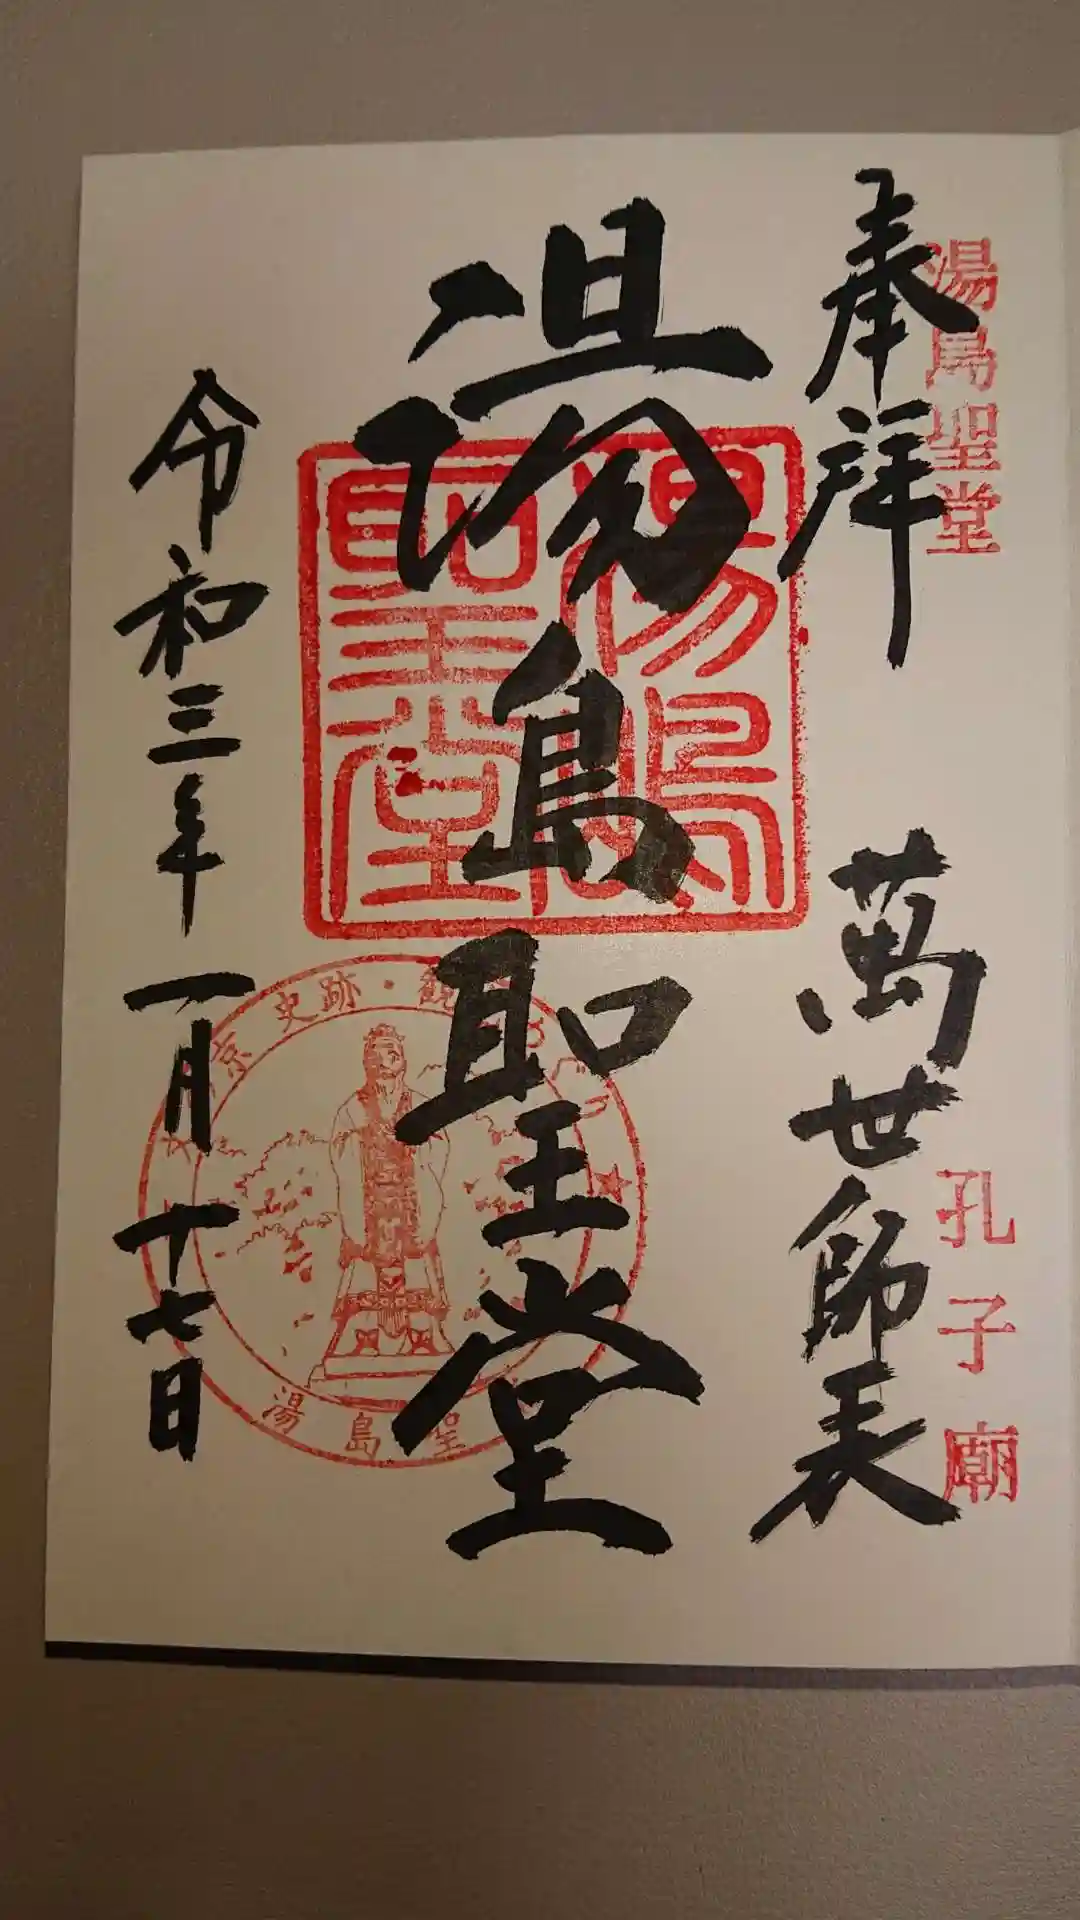 湯島聖堂
孔子廟
奉拝
萬世師表
湯島聖堂
湯島聖堂
令和三年一月十七日
京 史跡・観
湯島聖